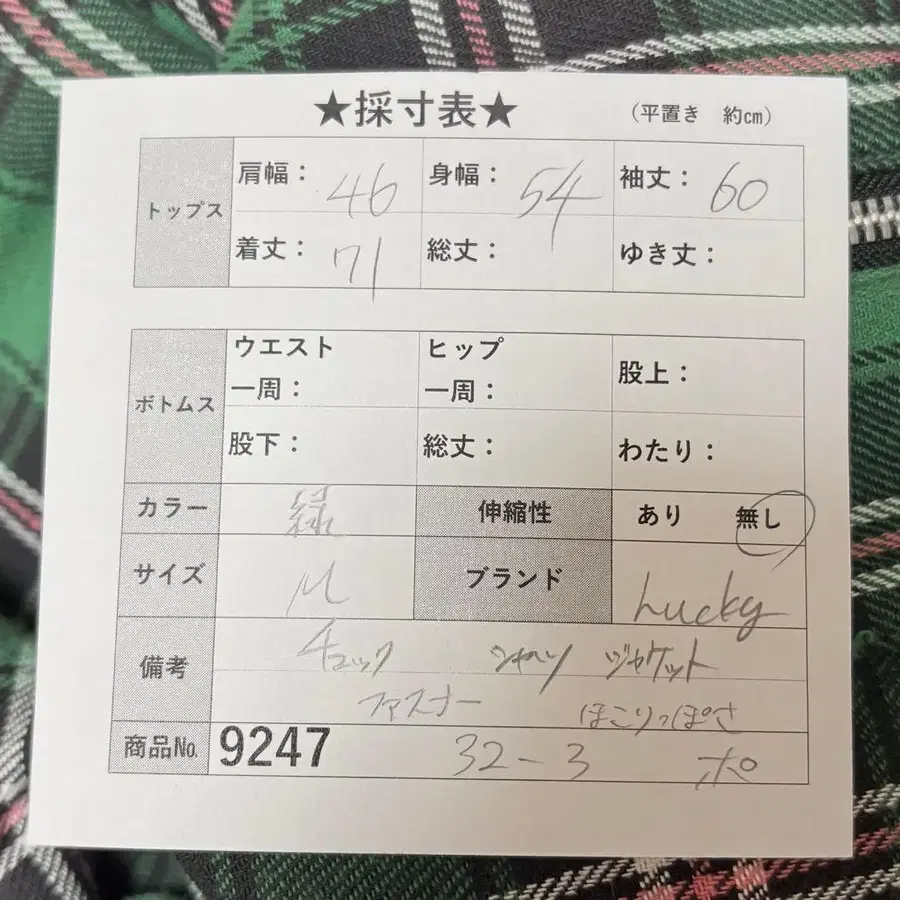 ★採寸表★ (平置き 約cm)
トップス
肩幅: 46 身幅: 54 袖丈: 60
着丈: 71 総丈: ゆき丈:
ボトムス
ウエスト一周: ヒップ一周: 股上:
股下: 総丈: わたり:
カラー 緑 伸縮性 あり 無し
サイズ M ブランド Lucky
備考 チェック シャツ ジャケット
ファスナー ほこりっぽさ
商品No. 9247 32-3 ポ